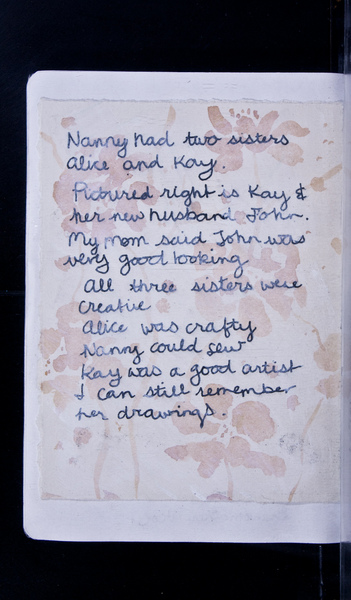 Nanny had two sisters
Alice and Kay.
Pictured right is Kay &
her new husband John.
My mom said John was
very good looking
All three sisters were
creative
Alice was crafty
Nanny could sew
Kay was a good artist
I can still remember
her drawings.